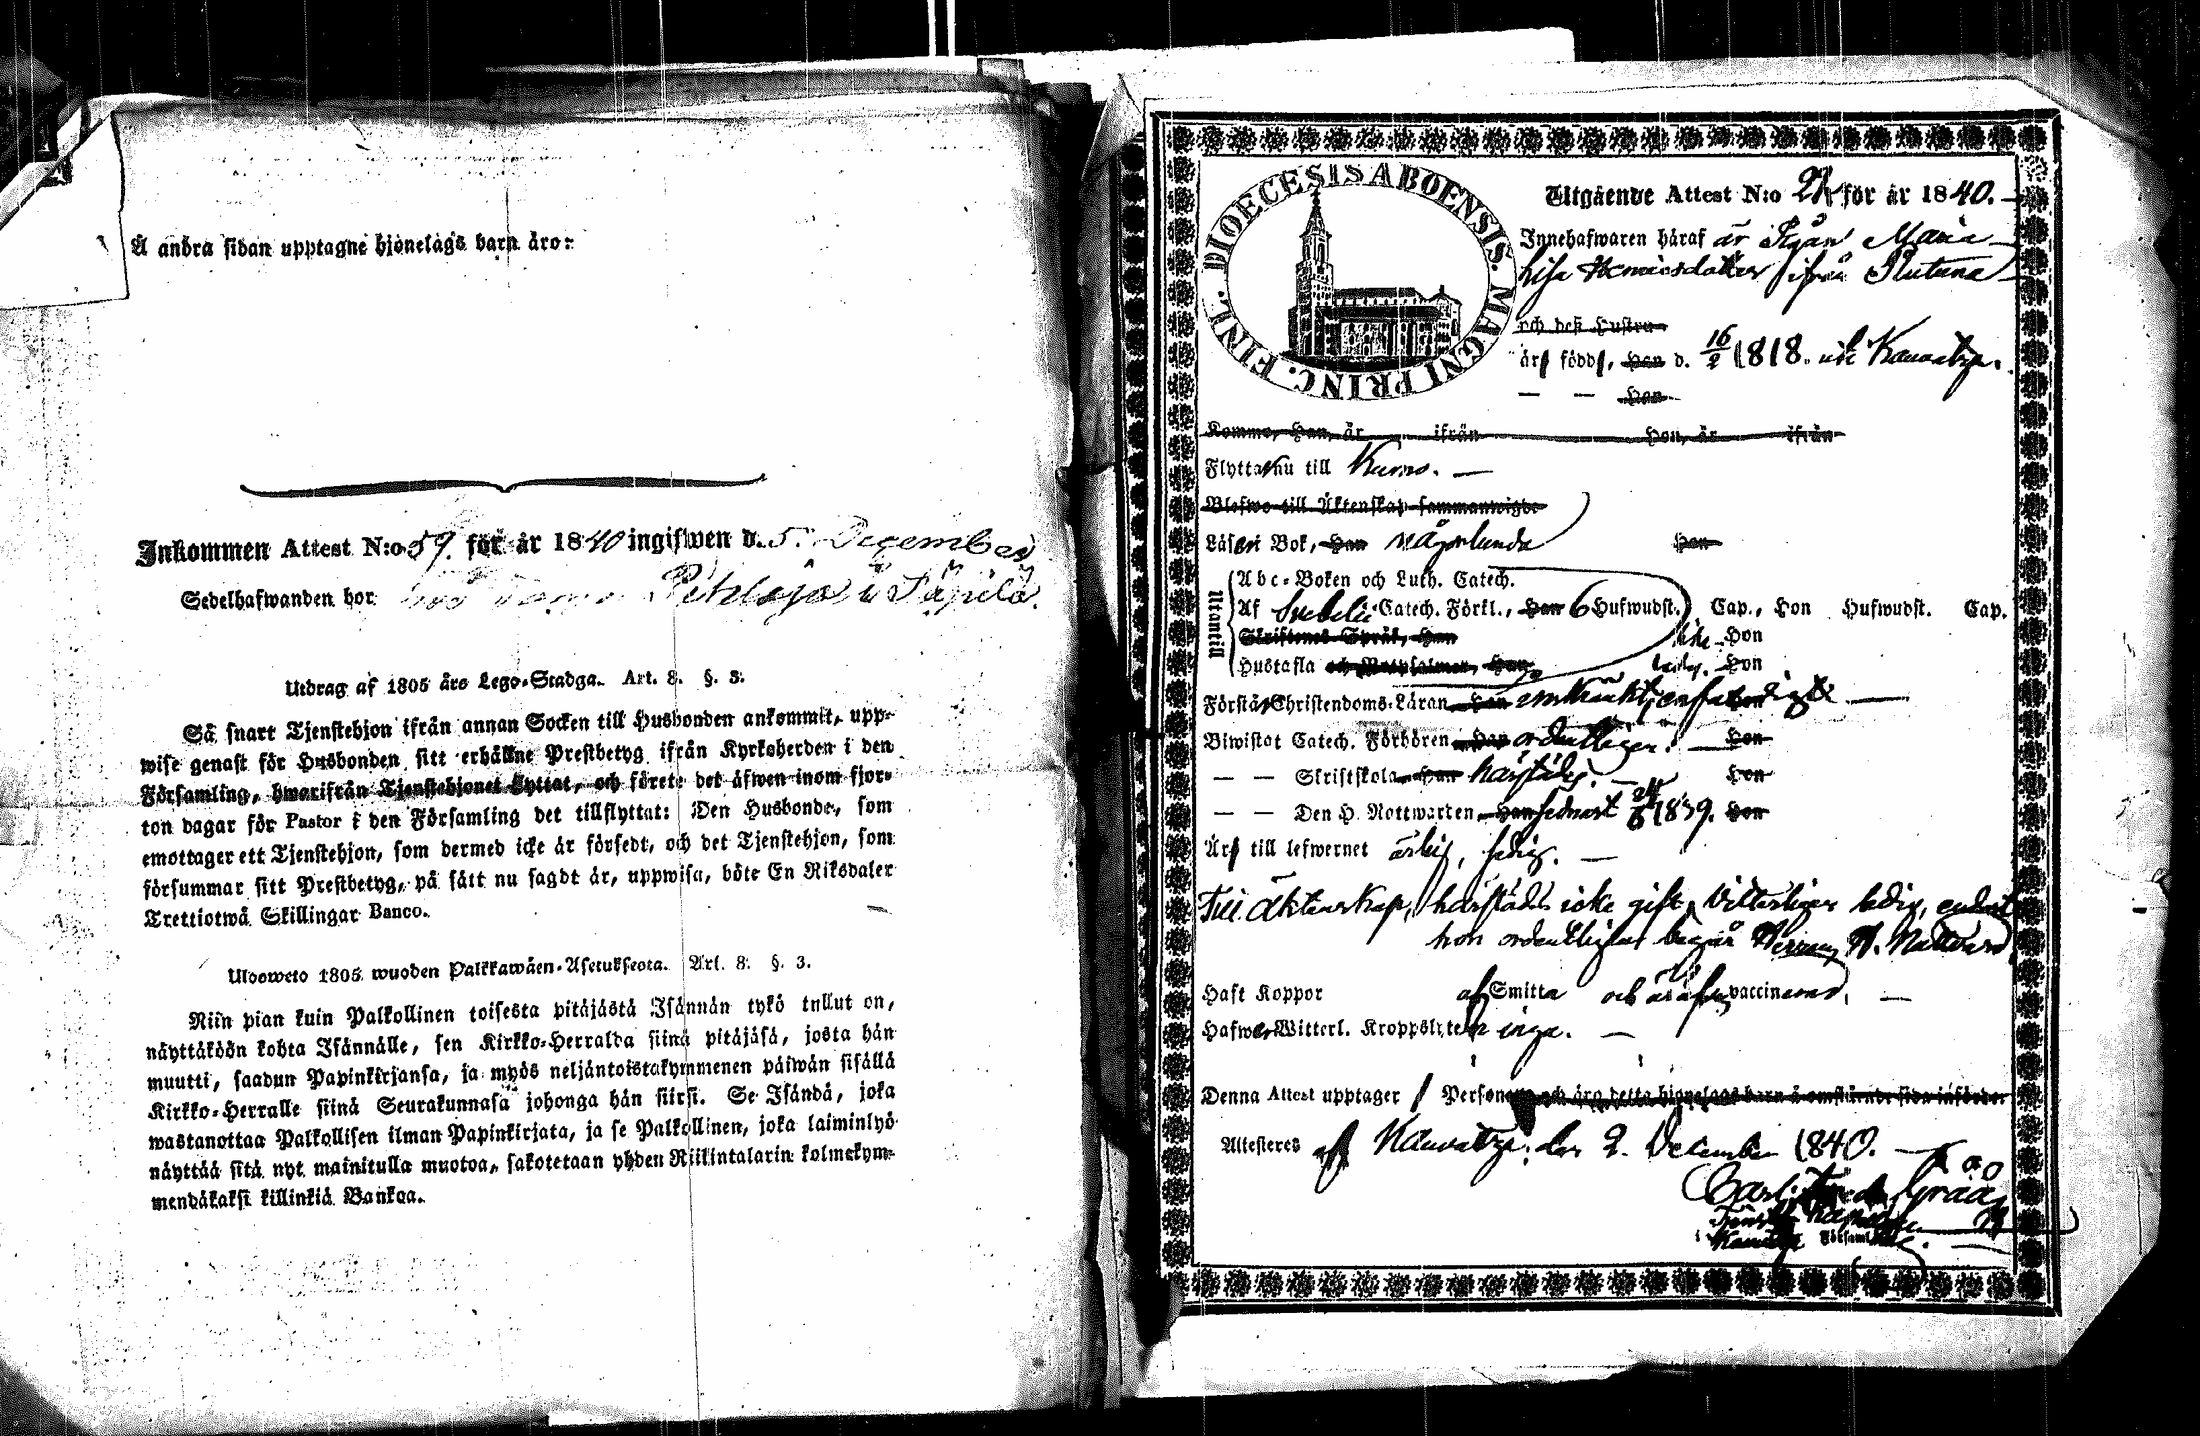 Å andra sidan upptagne hjonelags barn äro:
Inkommen Attest N:o 59. för år 1840 ingifwen d. 5. December
Sedelhafwanden bor Pehlaja i Säpilä.
Utdrag af 1805 års Lego-Stadga. Art. 8. §. 3.
Så snart Tjenstehjon ifrån annan Socken till Husbonden ankommit, upp-
wise genast för Husbonden sitt erhållne Prestbetyg ifrån Kyrkoherden i den
Församling, hwarifrån Tjenstehjonet flyttat, och förete det äfwen inom fjor-
ton dagar för Pastor i den Församling det tillflyttat: Den Husbonde, som
emottager ett Tjenstehjon, som dermed icke är försedt, och det Tjenstehjon, som
försummar sitt Prestbetyg, på sätt nu sagdt är, uppwisa, böte En Riksdaler
Trettiotwå Skillingar Banco.
Ulosweto 1805 wuoden Palkkawäen-Asetuksesta. Art. 8. §. 3.
Niin pian kuin Palkollinen toisesta pitäjästä Isännän tykö tullut on,
näyttäköön kohta Isännälle, sen Kirkko-Herralda siinä pitäjäsä, josta hän
muutti, saadun Papinkirjansa, ja myös neljäntoistakymmenen päiwän sisällä
Kirkko-Herralle siinä Seurakunnasa johonga hän siirsi. Se Isändä, joka
wastanottaa Palkollisen ilman Papinkirjata, ja se Palkollinen, joka laiminlyö
näyttää sitä nyt mainitulla muotoa, sakotetaan yhden Riikintalarin kolmekym-
mendäkaksi killinkiä Bankoa.
DIOECESIS ABOENSIS. MAGNI PRINC. FINL.
Utgående Attest N:o för år 1840.
Innehafwaren häraf är Pigan Maria
Lisa Henricsdotter ifrån Piutuna
och deß Hustru
är född, Han d. 16/2 1818. uti Kauvatza.
— — Han
Komne, Han, år ifrån Hon, år ifrån
Flyttar nu till Kumo. —
Blefwo till Äktenskap sammanwigde
Läser i Bok, Han någorlunda Hon
Utantill
Abc-Boken och Luth. Catech.
Af Svebelii Catech. Förkl., Han 6 Hufwudst. Cap., Hon Hufwudst. Cap.
Skriftenes Språk, Han Hon
Hustafla och Botpsalmer, Han Hon
Förstår Christendoms-Läran, Han enfaldigt —
Biwistat Catech. Förhören Han ordentligen. — Hon
— — Skriftskola Han härstädes. — Hon
— — Den H. Nattwarden, Han sednast 1839. Hon
Är till lefwernet ärlig, sedig. —
Till Äktenskap, härstädes icke gift, vitterligen ledig, endast
hon ordentligen begår Herrans H. Nattvard
Haft Koppor af Smitta och är äfven vaccinerad. —
Hafwer Witterl. Kroppslyten inga. —
Denna Attest upptager 1 Person och äro detta hjonelags barn å omstående sida införde
Attesteras af Kauvatza, den 2. December 1840. —
Carl Fredr. Grää
Kauvatza Församl.